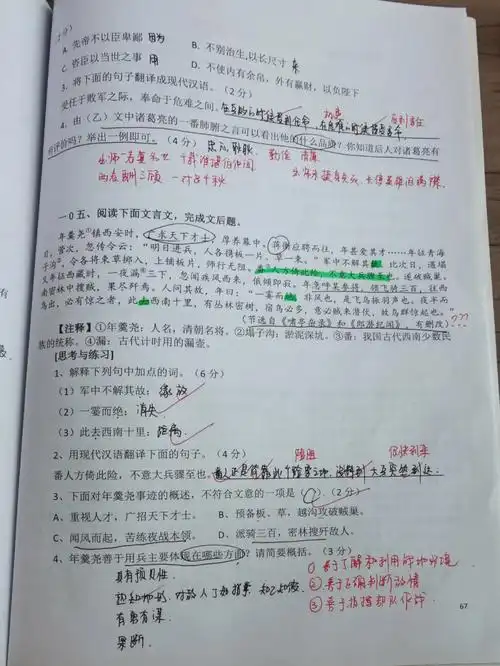 A. 先帝不以臣卑鄙 因为
B. 不别治生,以长尺寸
C. 咨臣以当世之事 用
D. 不使内有余帛,外有赢财,以负陛下
3. 将下面的句子翻译成现代汉语。(2分)
受任于败军之际,奉命于危难之间。
4. 由(乙)文中诸葛亮的一番肺腑之言可以看出他的什么品质?你知道后人对诸葛亮有
些评价吗?举出一例即可。(4分)
勤俭 清廉
出师一表真名世 千载谁堪伯仲间
两表酬三顾 一对足千秋
一0五、阅读下面文言文,完成文后题。
年羹尧①镇西安时,广求天下才士,厚养幕中。蒋衡应聘而往,年甚爱其才……年征青海
日,营次,忽传令云:“明日进兵,人各携板一片、草一束。”军中不解其故。比次日,遇塌
子沟②,令各将束草掷入,上铺板片,师行无阻。番③人方倚此险,不意大兵骤至也,遂破贼巢。
又年征西藏时,一夜漏④三下,忽闻疾风西来,俄顷即寂。年急呼某参将,领飞骑三百,往西
南密林中搜贼,果尽歼焉。人问其故,年曰:“一霎而绝,非风也,是飞鸟振羽声也。夜半而
鸟出,必有惊之者,此去西南十里,有丛林密树,宿鸟必多,意必贼来潜伏,故鸟群惊起也。”
(节选自《啸亭杂录》和《郎潜纪闻》,有删改)???
【注释】①年羹尧:人名,清朝名将。②塌子沟:淤泥深坑。③番:我国古代西南少数民
族的统称。④漏:古代计时用的漏壶。
[思考与练习]
1、解释下列句中加点的词。(6分)
(1)军中不解其故:缘故
(2)一霎而绝:消失
(3)此去西南十里:距离
2、用现代汉语翻译下面的句子。(4分)
番人方倚此险,不意大兵骤至也。
3、下面对年羹尧事迹的概述,不符合文意的一项是( )。(2分)
A、重视人才,广招天下才士。 B、预备板、草,越沟攻破贼巢。
C、闻风而起,苦练夜战本领。 D、派骑三百,密林搜歼敌人。
4、年羹尧善于用兵主要体现在哪些方面?请简要概括。(3分)
具有预见性.
①善于了解和利用战地环境
②善于正确判断敌情
有勇有谋
③善于指挥部队作战
果断.
67